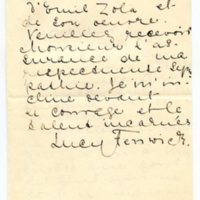 d'Emil Zola et
de son oeuvre.
Veuillez recevoir
Monsieur l'as-
surance de ma
respectueuse sym-
pathie. Je m'in-
cline devant
le courage et le
talent incarnés
Lucy Fenwick.